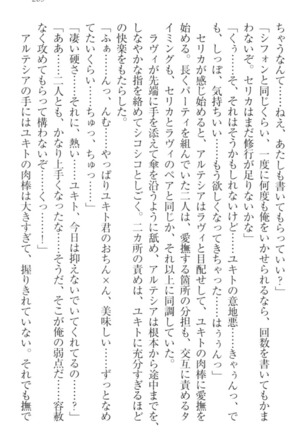 ちゃうなんて、くねぇ、あたしも書いてもらっていい?」
「シフォンと同じくらい、一度に何度も俺をいかせられるなら、回数を書いても構
わないぞ。セリカはまだ修行が足りないかな」
「くぅ……そ、それはそうかもしれないけど……ユキトの意地悪……きゃぅんっ、で
も、しっぽ、気持ちいい……もう欲しくなってきちゃった……はぅぅんっ」
セリカが感じ始めると、アルテシアはラヴィと目配せして、ユキトの肉棒に愛撫を
始める。長くパーティを組んでいた二人は、愛撫する箇所の分担も、交互に責めるタ
イミングも、セリカとラヴィのペアと同じか、それ以上に同調していた。
ラヴィが先端に手を添えて傘を沿うように舐め、アルテシアは根本から途中までを、
しなやかな指を絡めてシコシコとしごく。二カ所の責めは、ユキトに充分すぎるほど
の快楽をもたらした。
「ふぁ……んっ、んむ……やっぱりユキト君のおち×ん、美味しい……ずっとなめ
てたいくらい……ちゅっ、ちゅっ……」
「凄い硬さ……それに、熱い……ユキト、今日は抑えないでいてくれてるの……?」
「ああ……二人とも、かなり上手くなったな……そうだ、そこが俺の弱点だ……容赦
なく攻めてもらって構わないぞ……くっ……」
アルテシアの手にはユキトの肉棒は大きすぎて、握りきれていない。それでも撫で